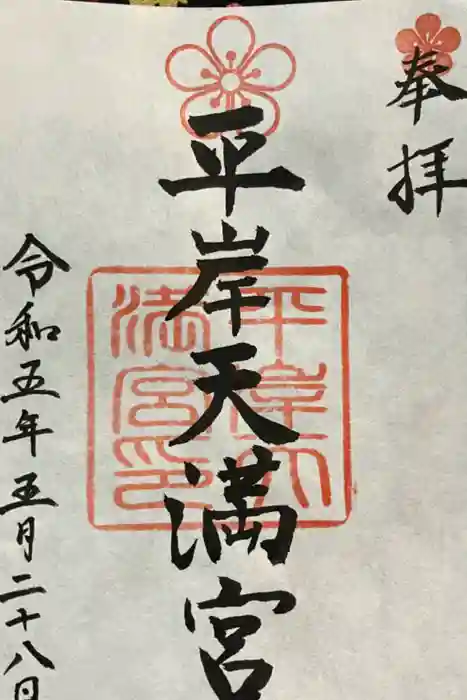 奉拝
平岸天満宮
平岸天
満宮印
令和五年五月二十八日